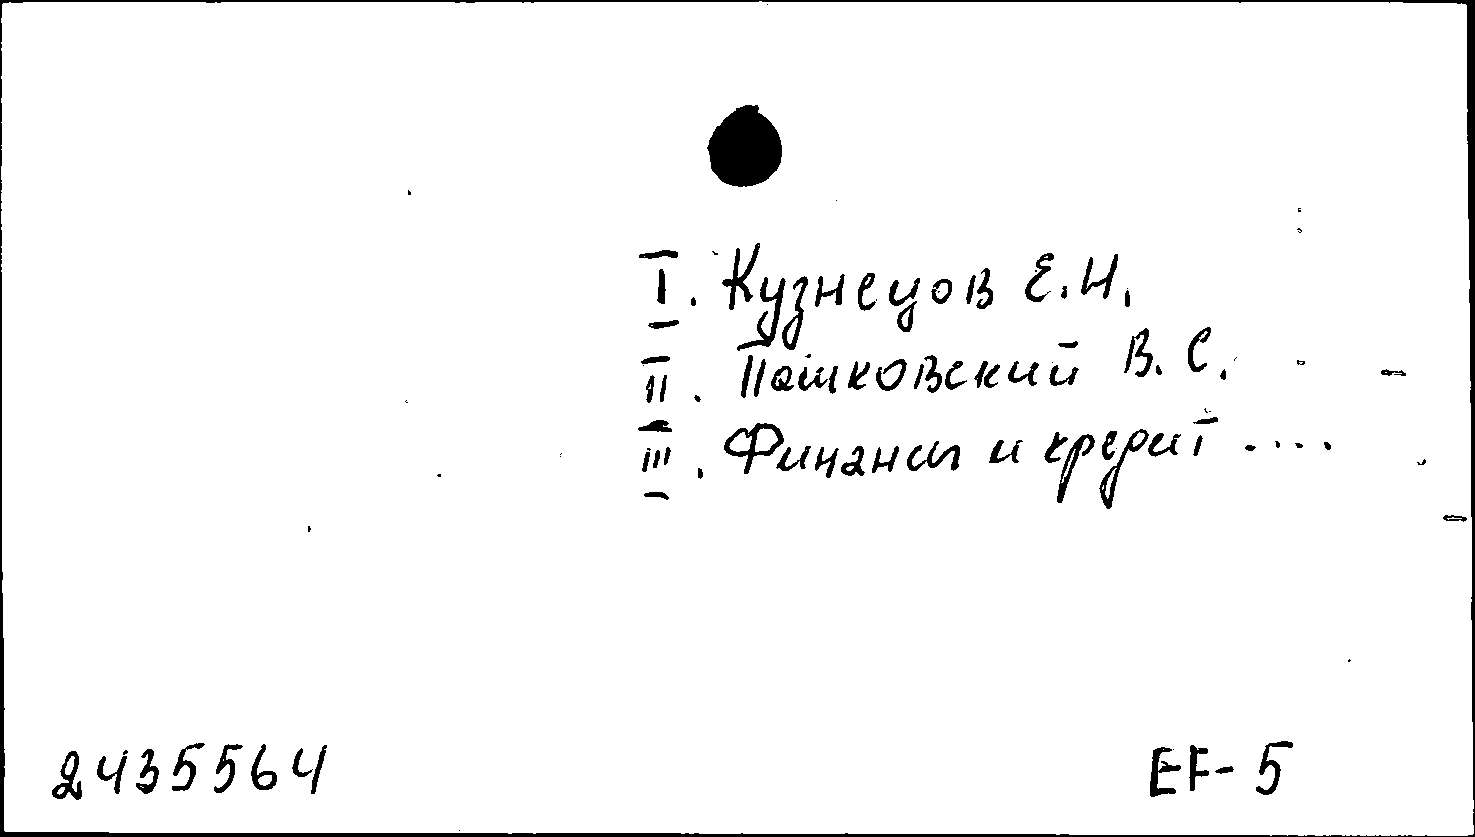 I. Кузнецов Е.Н.
II. Пашковский В.С.
III. Финансы и кредит ....
2435564 EF-5